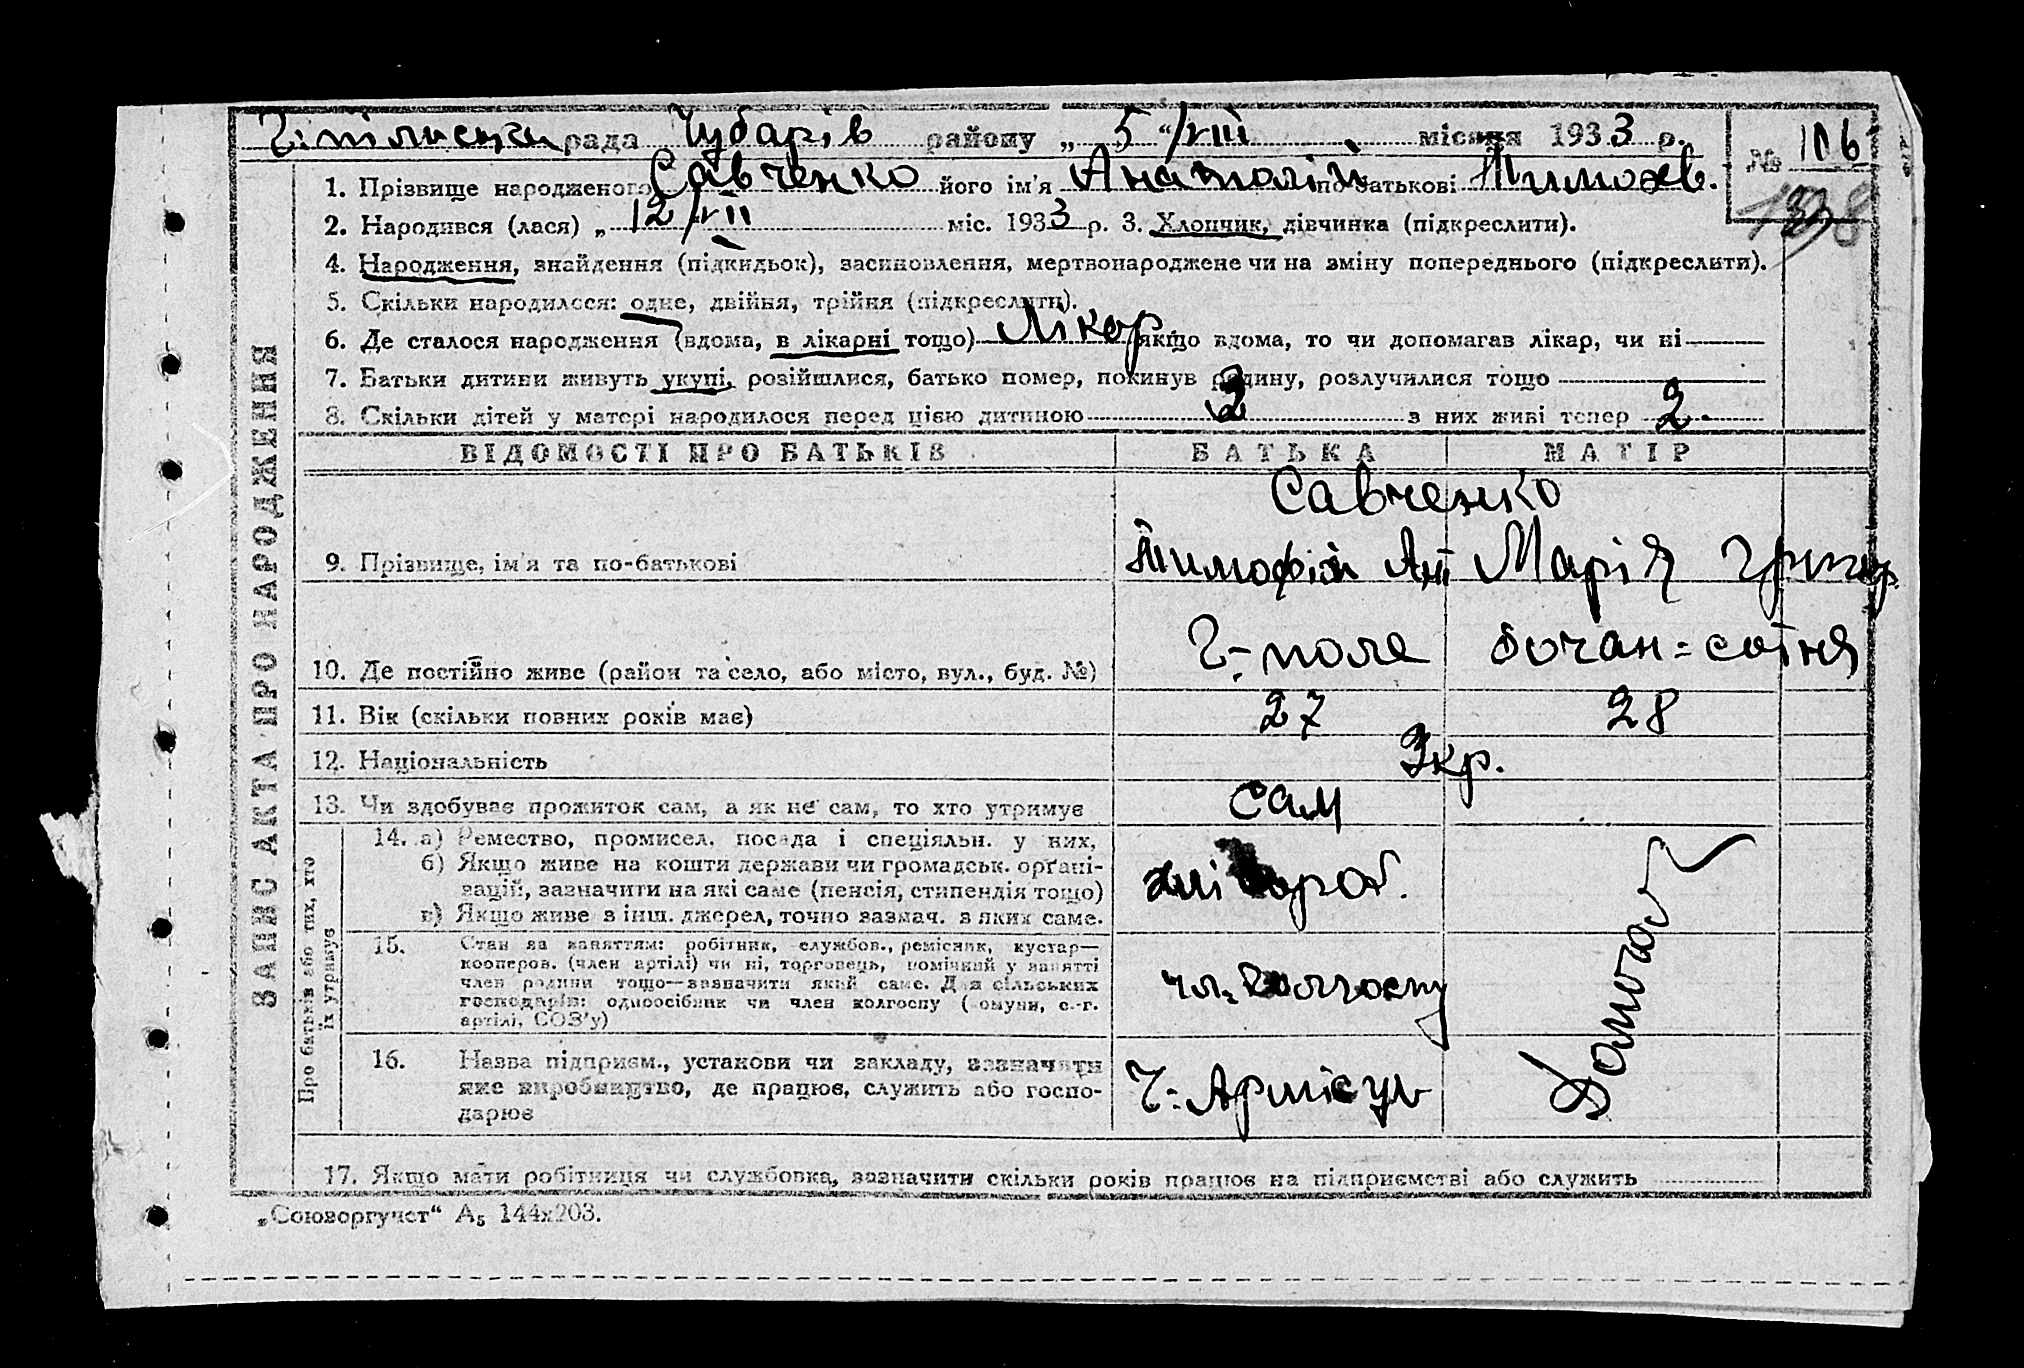 рада Чубарів району „ 5 “/VIII місяця 1933 р.
№ 106
1. Прізвище народженого Савченко його ім'я Анатолій по батькові Тимохв.
2. Народився (лася) „ 12/VII міс. 1933 р. 3. Хлопчик, дівчинка (підкреслити).
4. Народження, знайдення (підкидьок), засиновлення, мертвонароджене чи на зміну попереднього (підкреслити).
5. Скільки народилося: одне, двійня, трійня (підкреслити).
6. Де сталося народження (вдома, в лікарні тощо) Лікар. якщо вдома, то чи допомагав лікар, чи ні
7. Батьки дитини живуть укупі, розійшлися, батько помер, покинув родину, розлучилися тощо
8. Скільки дітей у матері народилося перед цією дитиною 2 з них живі тепер 2.
ЗАПИС АКТА ПРО НАРОДЖЕННЯ
ВІДОМОСТІ ПРО БАТЬКІВ БАТЬКА МАТІР
Савченко
9. Прізвище, ім'я та по-батькові Тимофій Ант Марія Григор.
10. Де постійно живе (район та село, або місто, вул., буд. №) Г-поле сотня
11. Вік (скільки повних років має) 27 28
12. Національність Укр.
13. Чи здобуває прожиток сам, а як не сам, то хто утримує сам
Про батьків або тих, хто їх утримує
14. а) Ремество, промисел, посада і спеціяльн. у них,
б) Якщо живе на кошти держави чи громадськ. орґані-
зацій, зазначити на які саме (пенсія, стипендія тощо)
в) Якщо живе з інш. джерел, точно зазнач. з яких саме.
15. Стан за заняттям: робітник, службов., ремісник, кустар—
кооперов. (член артілі) чи ні, торговець, помічний у занятті
член родини тощо—зазначити який саме. Для сільських
господарів: одноосібник чи член колгоспу (комуни, с.-г.
артілі, СОЗ'у)
чл. колгоспу
16. Назва підприєм., установи чи закладу, зазначити
яке виробництво, де працює, служить або госпо-
дарює
17. Якщо мати робітниця чи службовка, зазначити скільки років працює на підприємстві або служить
„Союзоргучет“ А₅ 144х203.